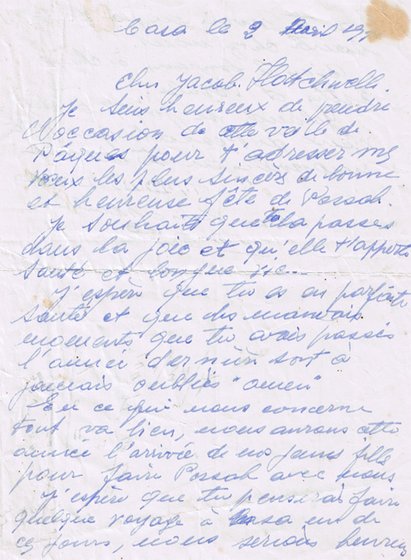 Casa le 2 Avril 197
Cher Jacob.
Je suis heureux de prendre
l'occasion de cette veille de
Pâques pour t'adresser mes
voeux les plus sincères de bonne
et heureuse fête de Possah.
Je souhaite que tu la passes
dans la joie et qu'elle t'apporte
santé et longue vie..
J'espère que tu es en parfaite
santé et que des mauvais
moments que tu avais passés
l'année dernière sont à
jamais oubliés "amen"
En ce qui nous concerne
tout va bien, nous aurons cette
année l'arrivée de nos jeunes filles
pour faire Possah avec nous
J'espère que tu penserais faire
quelque voyage à Casa un de
ces jours nous serions heureux